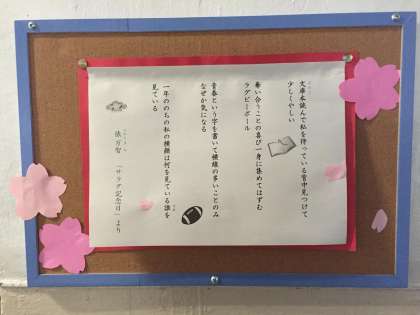 文庫本読んで私を待っている背中見つけて
少しくやしい
奪い合うことの喜び一身に集めてはずむ
ラグビーボール
青春という字を書いて横線の多いことのみ
なぜか気になる
一年ののちの私の横顔は何を見ている誰を
見ている
俵万智 「サラダ記念日」より